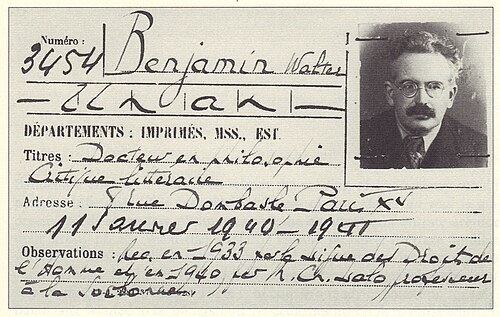 Numéro :
3454 Benjamin Walter
— Un an —
DÉPARTEMENTS : IMPRIMÉS, MSS., EST.
Titres : Docteur en philosophie
Critique litteraire
Adresse : rue Dombasle Paris XV
11 Janvier 1940 – 1941
Observations : Rec. en 1933 par la Ligue des Droits de
l'Homme et en 1940 par professeur
à la Sorbonne.